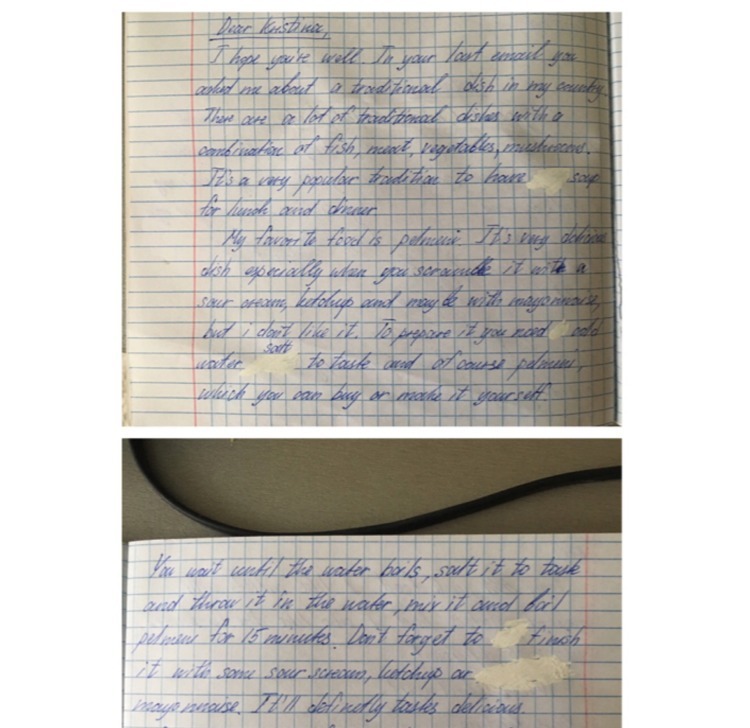 Dear Kristina,
I hope you're well. In your last email you
asked me about a traditional dish in my country.
There are a lot of traditional dishes with a
combination of fish, meat, vegetables, mushrooms.
It's a very popular tradition to have soup
for lunch and dinner
My favorite food is pelmeni. It's very delicious
dish especially when you scramble it with a
sour cream, ketchup and maybe with mayonnaise,
but i don't like it. To prepare it you need add
salt
water to taste and of course pelmeni,
which you can buy or make it yourself
You wait until the water boils, salt it to taste
and throw it in the water, mix it and boil
pelmeni for 15 minutes. Don't forget to finish
it with some sour scream, ketchup or
mayonnaise. It'll definetly tastes delicious